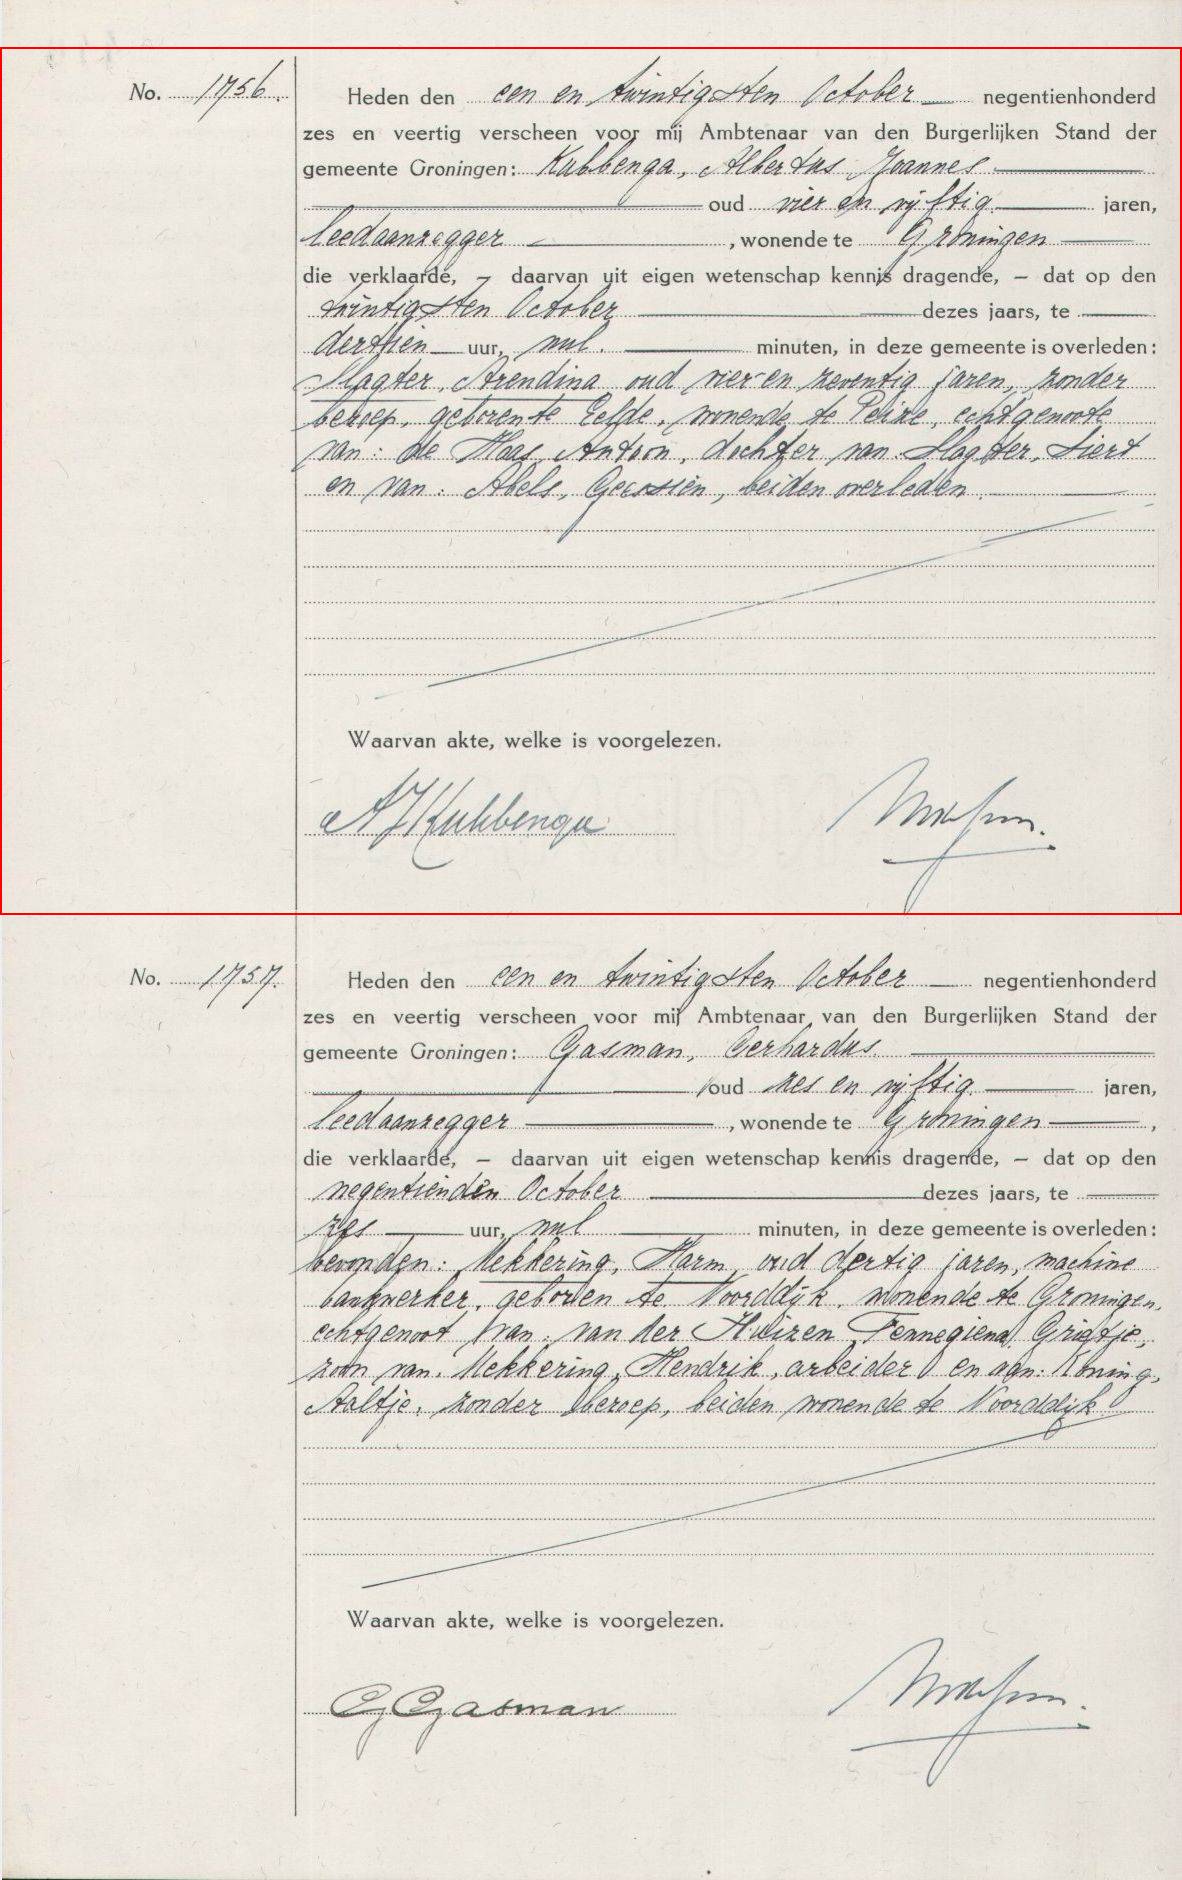 No. 1756.
Heden den een en twintigsten October negentienhonderd
zes en veertig verscheen voor mij Ambtenaar van den Burgerlijken Stand der
gemeente Groningen: Kubbenga, Albertus Joannes
oud vier en vijftig jaren,
leedaanzegger , wonende te Groningen
die verklaarde, – daarvan uit eigen wetenschap kennis dragende, – dat op den
twintigsten October dezes jaars, te
dertien uur, nul. minuten, in deze gemeente is overleden:
Slagter, Arendina oud vier en zeventig jaren, zonder
beroep, geboren te Eelde, wonende te Peize, echtgenoote
van: de Haas, Antoon, dochter van: Slagter, Siert
en van: Abels, Geessien, beiden overleden.
Waarvan akte, welke is voorgelezen.
AJKubbenga
No. 1757.
Heden den een en twintigsten October negentienhonderd
zes en veertig verscheen voor mij Ambtenaar van den Burgerlijken Stand der
gemeente Groningen: Gasman, Gerhardus.
oud zes en vijftig jaren,
leedaanzegger , wonende te Groningen ,
die verklaarde, – daarvan uit eigen wetenschap kennis dragende, – dat op den
negentienden October dezes jaars, te
zes uur, nul minuten, in deze gemeente is overleden:
bevonden: Mekkering, Harm, oud dertig jaren, machine
bankwerker, geboren te Noorddijk, wonende te Groningen,
echtgenoot van: van der Huizen, Fennegiena Grietje,
zoon van: Mekkering, Hendrik, arbeider en van: Koning,
Aaltje, zonder beroep, beiden wonende te Noorddijk
Waarvan akte, welke is voorgelezen.
G Gasman